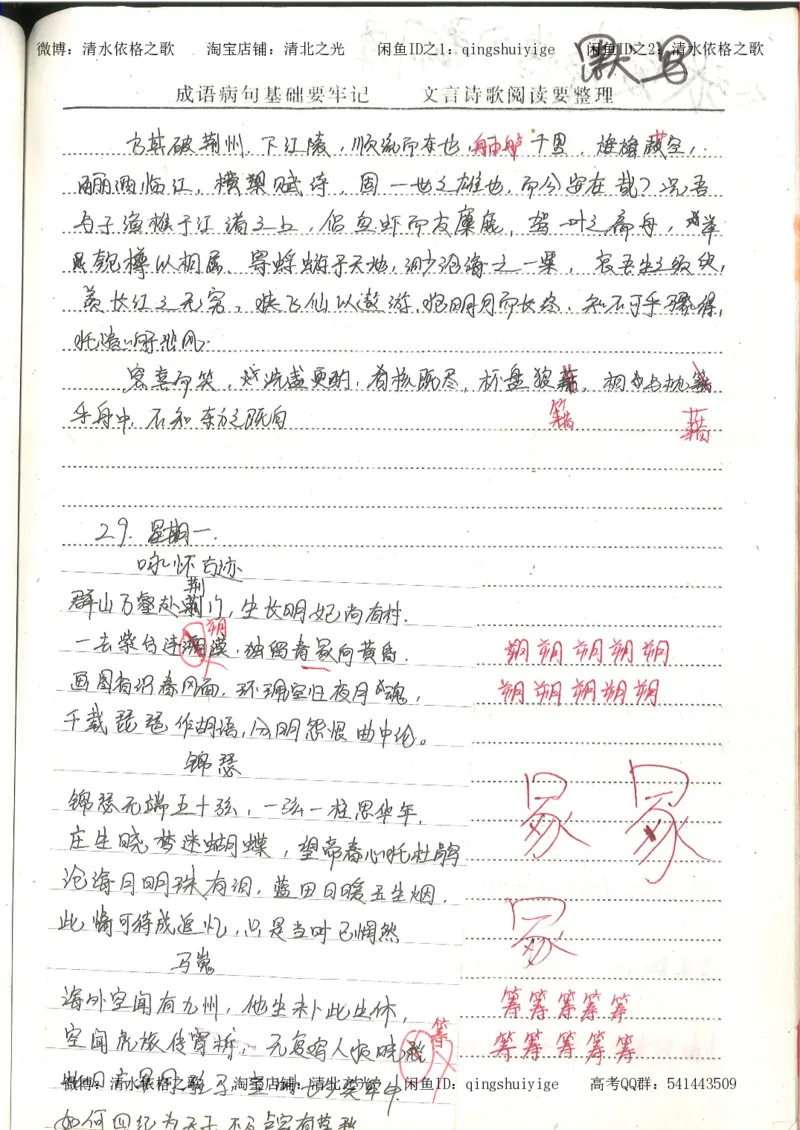 微博：清水依格之歌 淘宝店铺：清北之光 闲鱼ID之1：qingshuiyige 闲鱼ID之2：清水依格之歌
默写
成语病句基础要牢记 文言诗歌阅读要整理
方其破荆州，下江陵，顺流而东也，舳舻千里，旌旗蔽空，
酾酒临江，横槊赋诗，固一世之雄也，而今安在哉？况吾
与子渔樵于江渚之上，侣鱼虾而友麋鹿，驾一叶之扁舟，举
匏樽以相属，寄蜉蝣于天地，渺沧海之一粟，哀吾生之须臾，
羡长江之无穷，挟飞仙以遨游，抱明月而长终，知不可乎骤得，
托遗响于悲风。
客喜而笑，洗盏更酌，肴核既尽，杯盘狼藉，相与枕
籍
藉
乎舟中，不知东方之既白
29. 星期一.
咏怀古迹
荆
群山万壑赴荆门，生长明妃尚有村.
朔
一去紫台连漠，独留青冢向黄昏.
朔朔朔朔朔
画图省识春风面，环珮空归夜月魂，
朔朔朔朔朔
千载琵琶作胡语，分明怨恨曲中论。
锦瑟
冢 冢
锦瑟无端五十弦，一弦一柱思华年，
庄生晓梦迷蝴蝶，望帝春心托杜鹃
沧海月明珠有泪，蓝田日暖玉生烟.
冢
此情可待成追忆，只是当时已惘然
马嵬
海外空闻有九州，他生未卜此生休，
筹筹筹筹筹
筹
空闻虎旅传宵柝，无复鸡人报晓
筹筹筹筹筹
微博：清水依格之歌 淘宝店铺：清北之光 闲鱼ID：qingshuiyige 高考QQ群：541443509
如何四纪为天子，不及卢家有莫愁